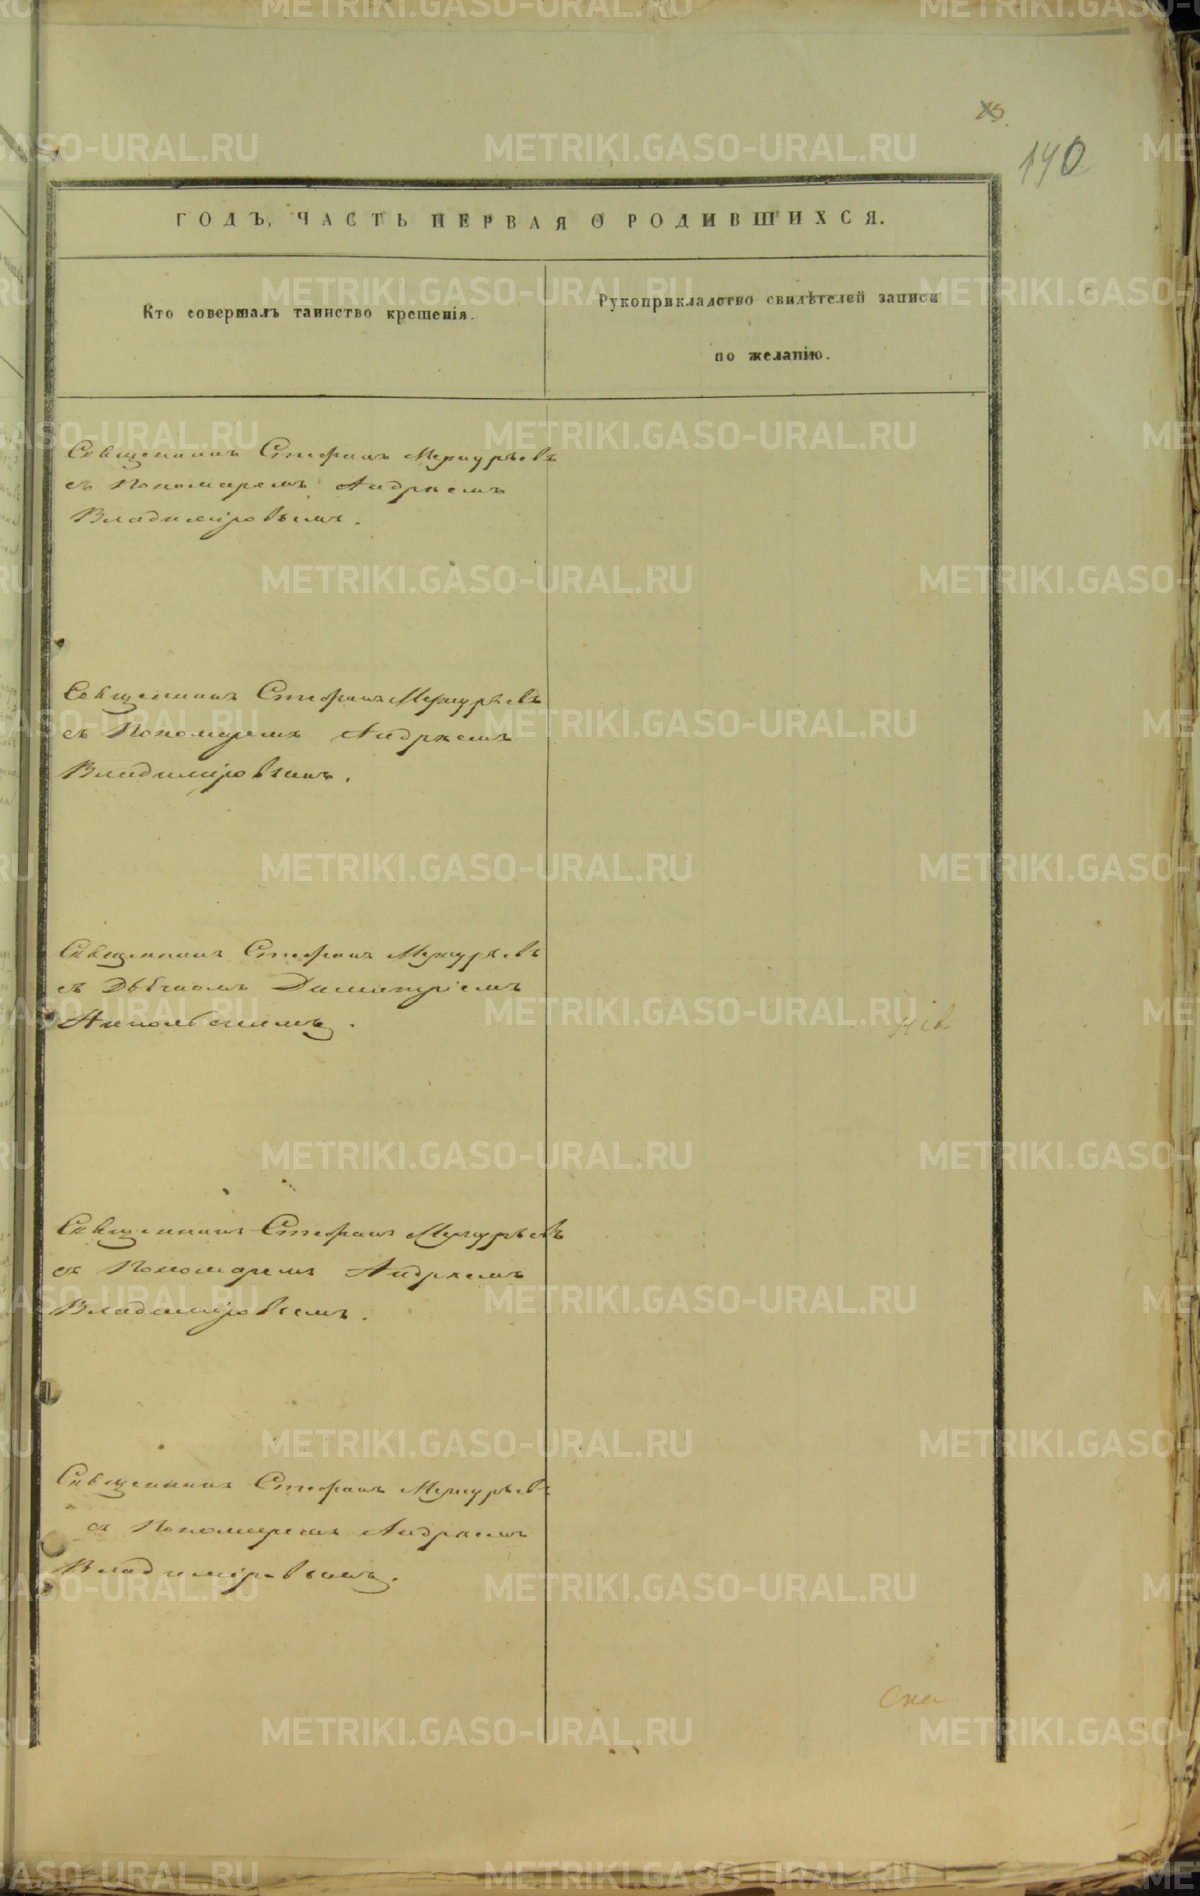 190
ГОДЪ, ЧАСТЬ ПЕРВАЯ О РОДИВШИХСЯ.
Кто совершалъ таинство крещенія.
Рукоприкладство свидѣтелей записи
по желанію.
Священникъ Стефанъ Меркурьевъ
съ Пономаремъ Андреемъ
Владиміровымъ.
Священникъ Стефанъ Меркурьевъ
съ Пономаремъ Андреемъ
Владиміровымъ.
Священникъ Стефанъ Меркурьевъ
съ Дьячкомъ Димитріемъ
Священникъ Стефанъ Меркурьевъ
съ Пономаремъ Андреемъ
Владиміровымъ.
Священникъ Стефанъ Меркурьевъ
съ Пономаремъ Андреемъ
Владиміровымъ.
METRIKI.GASO-URAL.RU